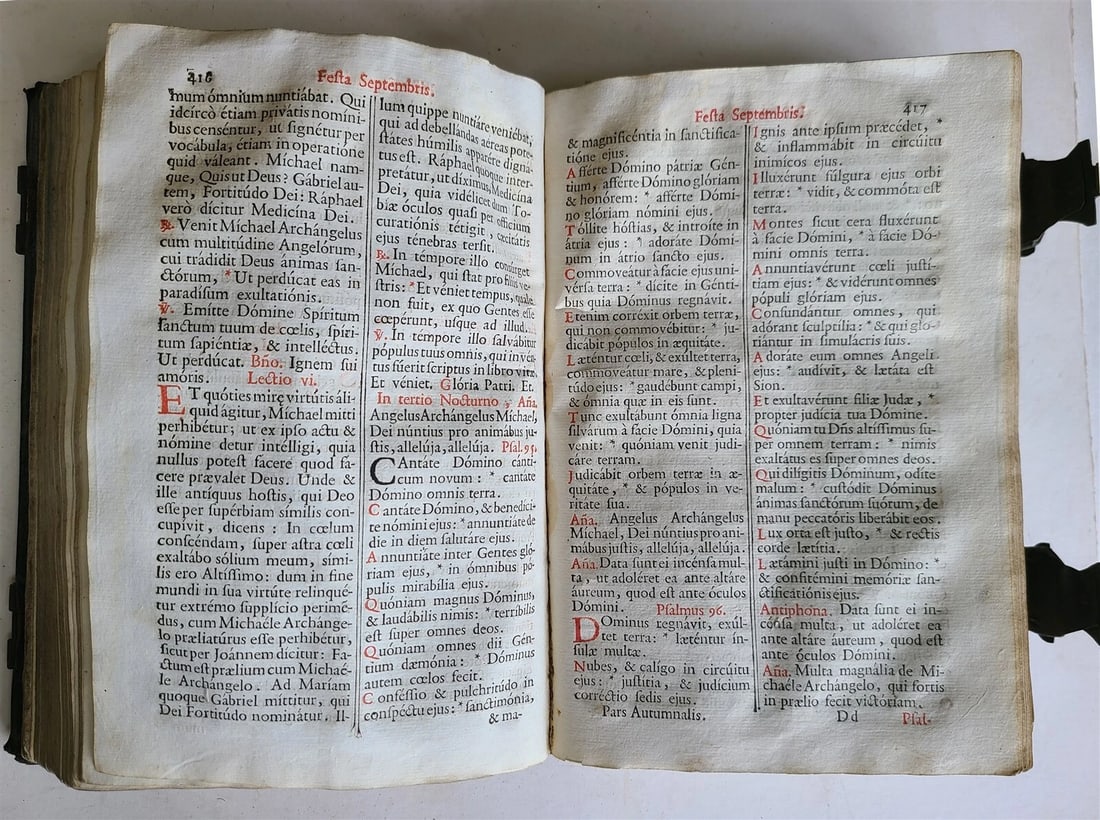 416
Festa Septembris.
mum ómnium nuntiábat. Qui
idcírco étiam privátis nomíni-
bus censéntur, ut signétur per
vocábula, étiam in operatióne
quid váleant. Míchael nam-
que, Quis ut Deus? Gábriel au-
tem, Fortitúdo Dei: Ráphael
verò dícitur Medicína Dei.
℟. Venit Míchael Archángelus
cum multitúdine Angelórum,
cui trádidit Deus ánimas san-
ctórum, * Ut perdúcat eas in
paradísum exultatiónis.
℣. Emítte Dómine Spíritum
sanctum tuum de cœlis, spíri-
tum sapiéntiæ, & intelléctus.
Ut perdúcat. Bño. Ignem sui
amóris. Lectio vi.
ET quóties miræ virtútis áli-
quid ágitur, Míchael mitti
perhibétur; ut ex ipso actu &
nómine detur intélligi, quia
nullus potest fácere quod fá-
cere prævalet Deus. Unde &
ille antíquus hostis, qui Deo
esse per supérbiam símilis con-
cupívit, dicens: In cœlum
conscéndam, super astra cœli
exaltábo sólium meum, sími-
lis ero Altíssimo: dum in fine
mundi in sua virtúte relinqué-
tur extrémo supplício perimé-
dus, cum Michaéle Archánge-
lo præliatúrus esse perhibétur,
sicut per Joánnem dícitur: Fa-
ctum est prælium cum Michaé-
le Archángelo. Ad Maríam
quoque Gábriel míttitur, qui
Dei Fortitúdo nominátur. Il-
lum quippe nuntiáre veniébat,
qui ad debellándas aéreas pote-
státes húmilis apparére digná-
tus est. Ráphael quoque inter-
pretátur, ut díximus, Medicína
Dei, quia vidélicet dum To-
bíæ óculos quasi per offícium
curatiónis tétigit, cæcitátis
ejus ténebras tersit.
℟. In témpore illo consúrget
Míchael, qui stat pro fíliis ve-
stris: * Et véniet tempus, quale
non fuit, ex quo Gentes esse
cœpérunt, usque ad illud.
℣. In témpore illo salvábitur
pópulus tuus omnis, qui invén-
tus fúerit scriptus in libro vitæ.
Et véniet. Glória Patri. Et.
In tertio Nocturno, Aña.
Angelus Archángelus Míchael,
Dei núntius pro animábus ju-
stis, allelúja, allelúja. Psal. 95.
CAntáte Dómino cánti-
cum novum: * cantáte
Dómino omnis terra.
Cantáte Dómino, & benedíci-
te nómini ejus: * annuntiáte de
die in diem salutáre ejus.
Annuntiáte inter Gentes gló-
riam ejus, * in ómnibus pó-
pulis mirabília ejus.
Quóniam magnus Dóminus,
& laudábilis nimis: * terríbilis
est super omnes deos.
Quóniam omnes dii Gén-
tium dæmónia: * Dóminus
autem cœlos fecit.
Conféssio & pulchritúdo in
conspéctu ejus: * sanctimónia,
& ma-
Festa Septembris.
417
& magnificéntia in sanctifica-
tióne ejus.
Afférte Dómino pátriæ Gén-
tium, afférte Dómino glóriam
& honórem: * afférte Dómi-
no glóriam nómini ejus.
Tóllite hóstias, & introíte in
átria ejus: * adoráte Dómi-
num in átrio sancto ejus.
Commoveátur à fácie ejus uni-
vérsa terra: * dícite in Génti-
bus quia Dóminus regnávit.
Etenim corréxit orbem terræ,
qui non commovébitur: * ju-
dicábit pópulos in æquitáte.
Læténtur cœli, & exúltet terra,
commoveátur mare, & pleni-
túdo ejus: * gaudébunt campi,
& ómnia quæ in eis sunt.
Tunc exultábunt ómnia ligna
silvárum à fácie Dómini, quia
venit: * quóniam venit judi-
cáre terram.
Judicábit orbem terræ in æ-
quitáte, * & pópulos in ve-
ritáte sua.
Aña. Angelus Archángelus
Míchael, Dei núntius pro ani-
mábus justis, allelúja, allelúja.
Aña. Data sunt ei incénsa mul-
ta, ut adoléret ea ante altáre
áureum, quod est ante óculos
Dómini. Psalmus 96.
DOminus regnávit, exúl-
tet terra: * læténtur ín-
sulæ multæ.
Nubes, & calígo in circúitu
ejus: * justítia, & judícium
corréctio sedis ejus.
Pars Autumnalis.
Ignis ante ipsum præcédet, *
& inflammábit in circúitu
inimícos ejus.
Illuxérunt fúlgura ejus orbi
terræ: * vidit, & commóta est
terra.
Montes sicut cera fluxérunt
à fácie Dómini, * à fácie Dó-
mini omnis terra.
Annuntiavérunt cœli justí-
tiam ejus: * & vidérunt omnes
pópuli glóriam ejus.
Confundántur omnes, qui
adórant sculptília: * & qui glo-
riántur in simulácris suis.
Adoráte eum omnes Angeli
ejus: * audívit, & lætáta est
Sion.
Et exultavérunt fíliæ Judæ, *
propter judícia tua Dómine.
Quóniam tu Dñs altíssimus su-
per omnem terram: * nimis
exaltátus es super omnes deos.
Qui dilígitis Dóminum, odíte
malum: * custódit Dóminus
ánimas sanctórum suórum, de
manu peccatóris liberábit eos.
Lux orta est justo, * & rectis
corde lætítia.
Lætámini justi in Dómino: *
& confitémini memóriæ san-
ctificatiónis ejus.
Antiphona. Data sunt ei in-
cénsa multa, ut adoléret ea
ante altáre áureum, quod est
ante óculos Dómini.
Aña. Multa magnália de Mi-
chaéle Archángelo, qui fortis
in prælio fecit victóriam.
Dd
Psal-